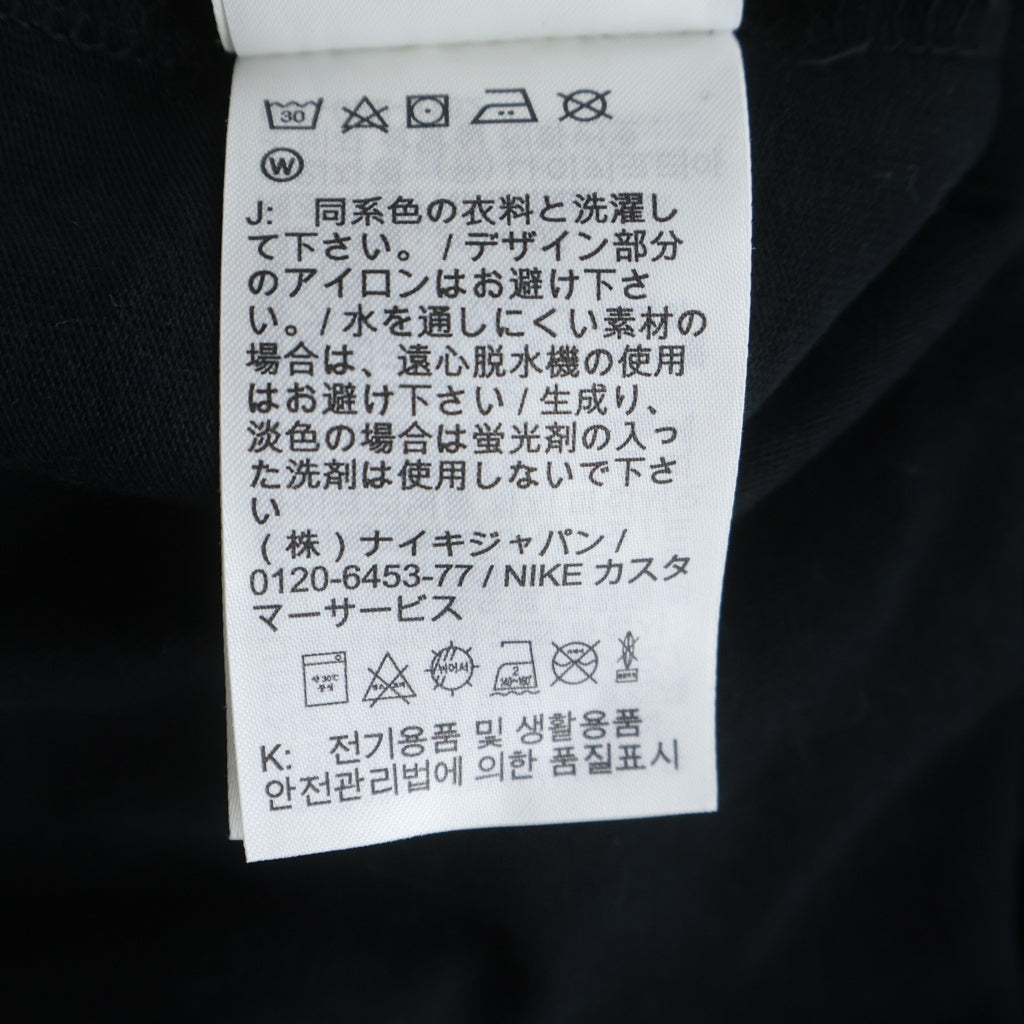 30
W
J: 同系色の衣料と洗濯し
て下さい。 / デザイン部分
のアイロンはお避け下さ
い。/ 水を通しにくい素材の
場合は、遠心脱水機の使用
はお避け下さい / 生成り、
淡色の場合は蛍光剤の入っ
た洗剤は使用しないで下さ
い
(株)ナイキジャパン /
0120-6453-77 / NIKE カスタ
マーサービス
약 30℃ 뉘어서 2
중성 140~160℃
K: 전기용품 및 생활용품
안전관리법에 의한 품질표시